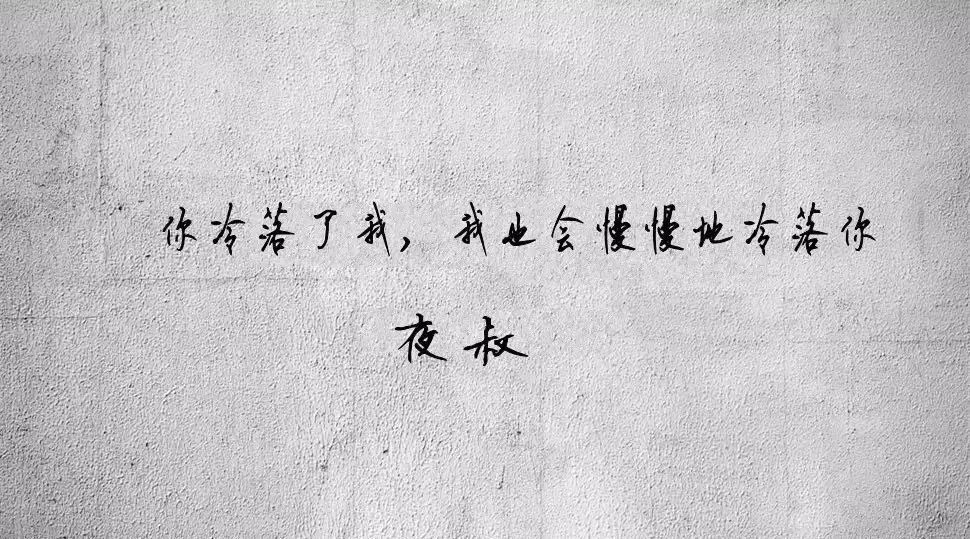 你冷落了我，我也会慢慢地冷落你
夜叔